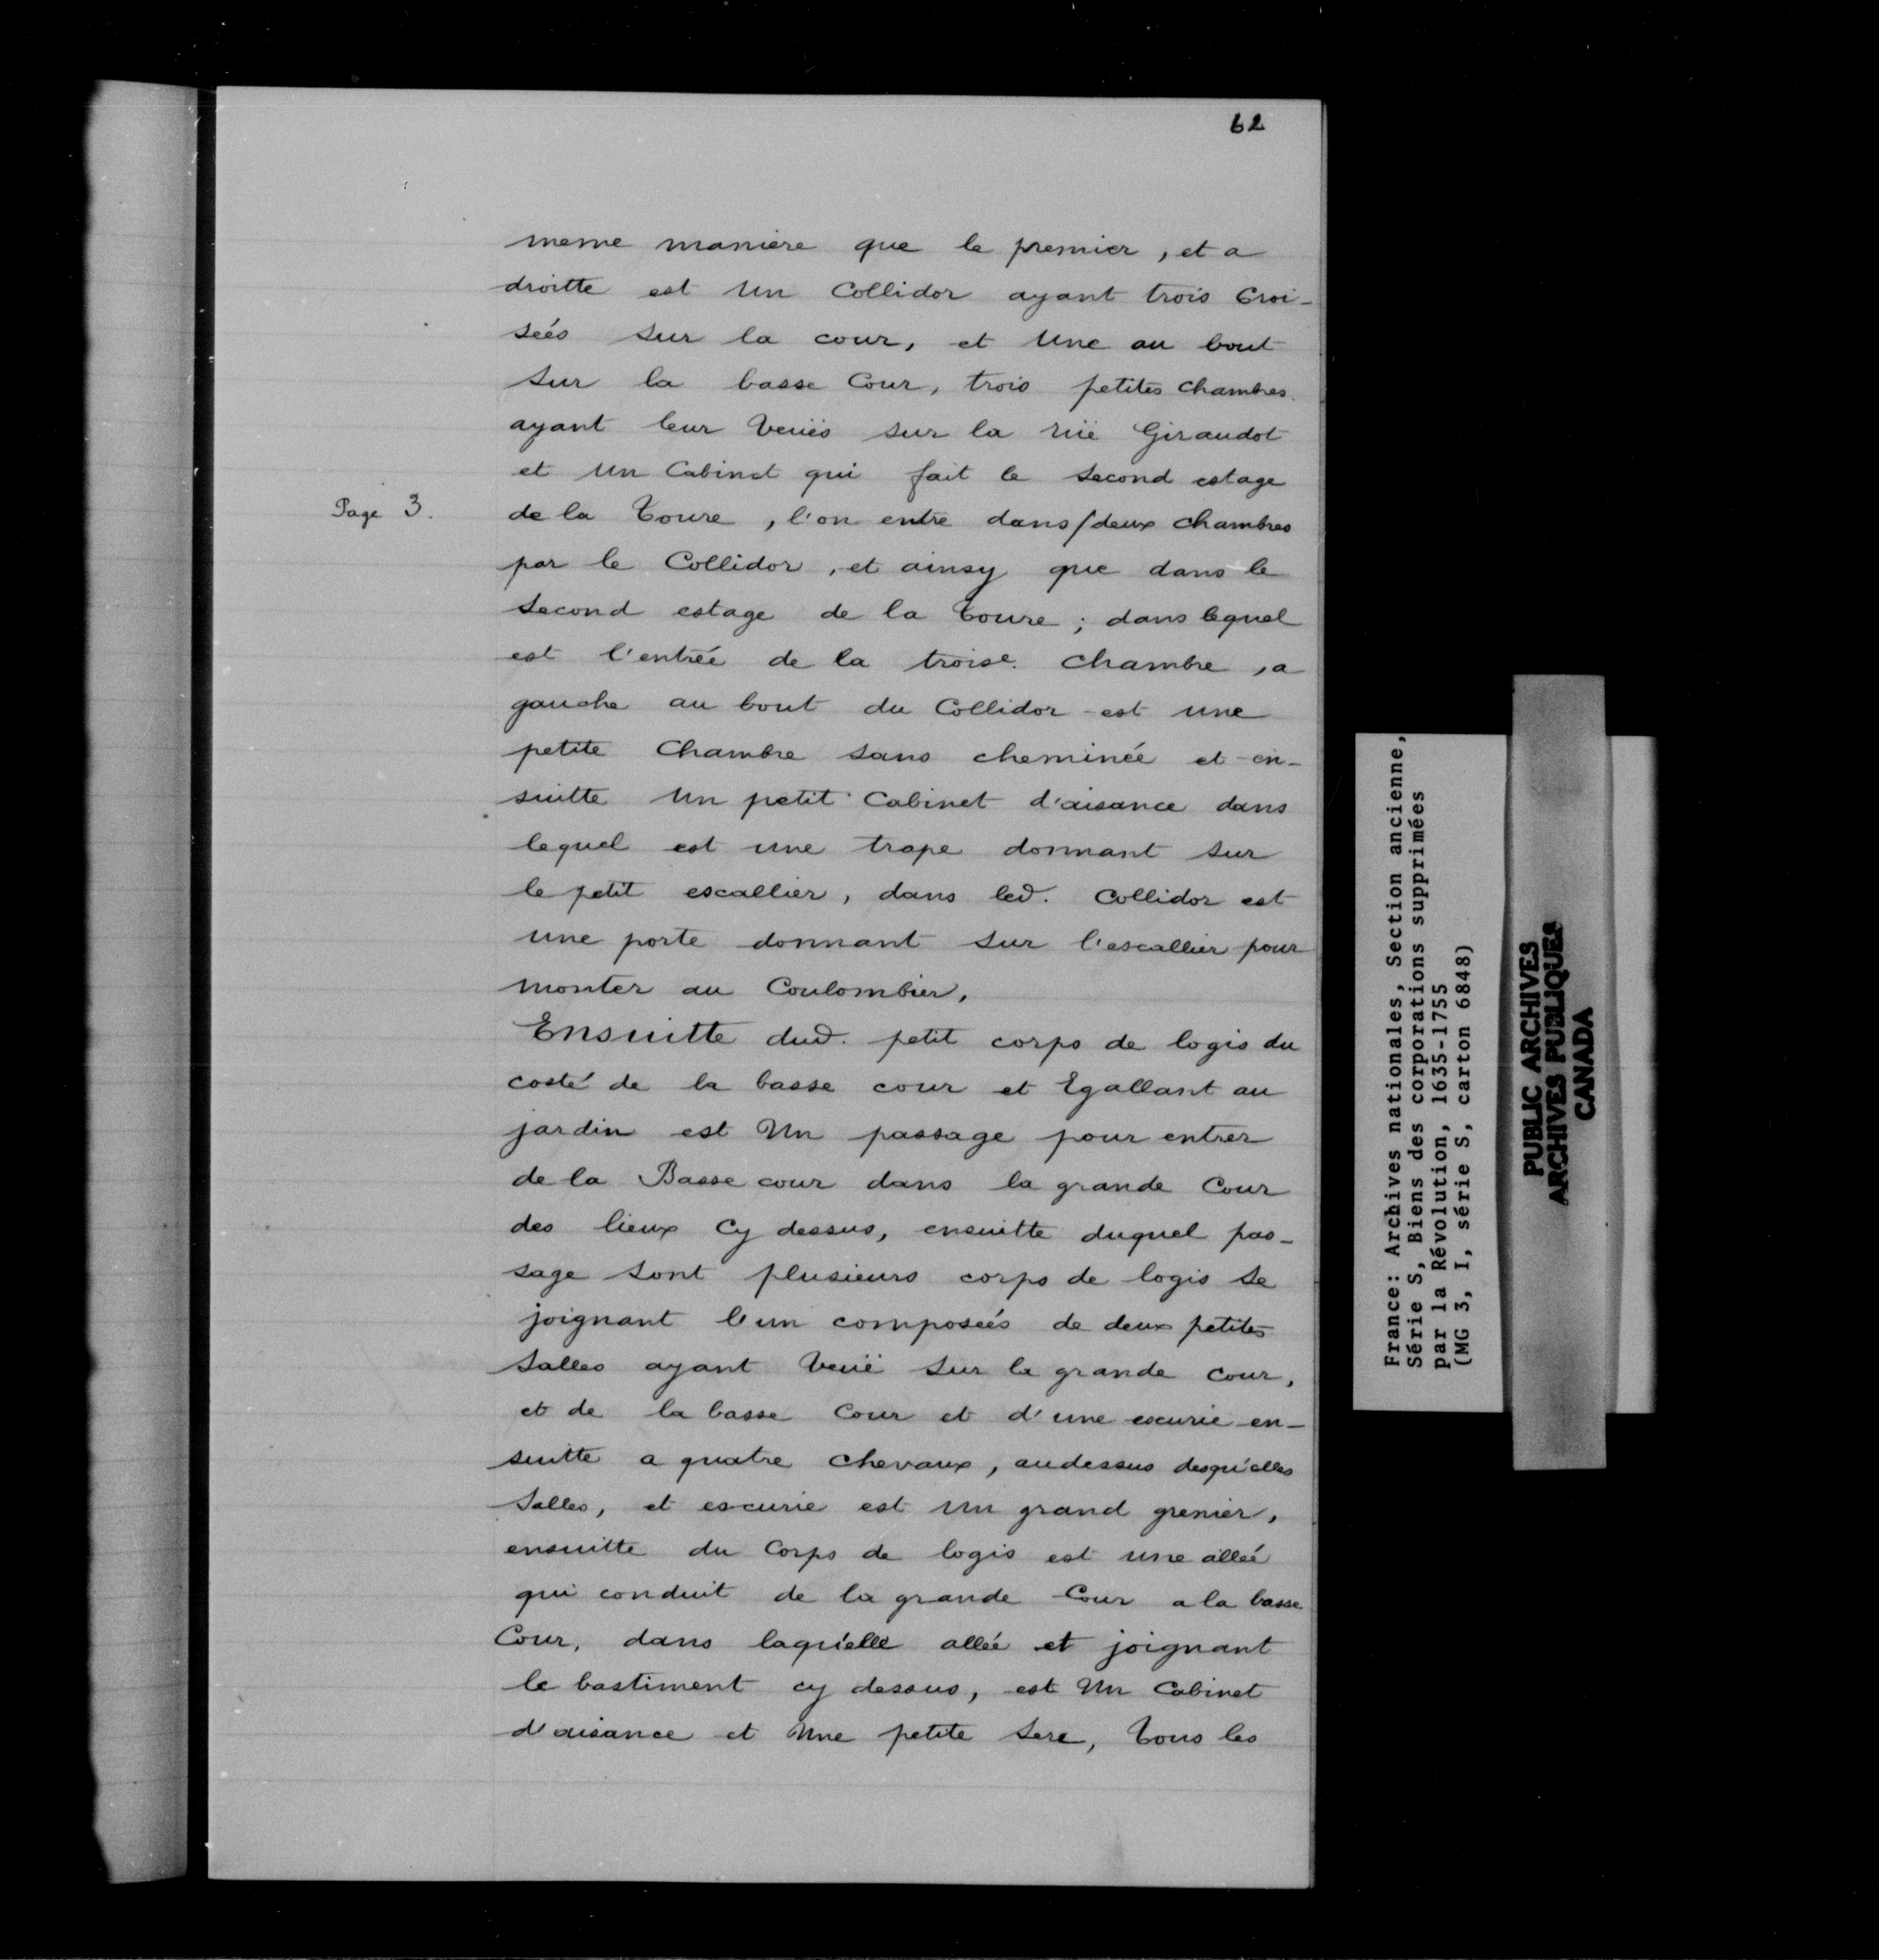 62
meme maniere que le premier, et a
droitte est Un Collidor ayant trois Croi-
seés sur la cour, et Une au bout
sur la basse Cour, trois petites chambres
ayant leur Veuës sur la rüe Giraudot
et Un Cabinet qui fait le second estage
Page 3.
de la Toure, l'on entre dans/deux chambres
par le Collidor, et ainsy que dans le
second estage de la Toure; dans lequel
est l'entrée de la troise. chambre, a
gauche au bout du Collidor est une
petite Chambre sans cheminée et en-
suitte Un petit Cabinet d'aisance dans
lequel est une trape donnant sur
le petit escallier, dans led. Collidor est
une porte donnant sur l'escallier pour
monter au Coulombier,
Ensuitte dud. petit corps de logis du
costé de la basse cour et Egallant au
jardin est Un passage pour entrer
de la Basse cour dans la grande Cour
des lieux Cy dessus, ensuitte duquel pas-
sage sont plusieurs corps de logis se
joignant l'un composeés de deux petites
salles ayant Veuë sur la grande cour,
et de la basse Cour et d'une escurie en-
suitte a quatre chevaux, audessus desqu'elles
salles, et escurie est Un grand grenier,
ensuitte du Corps de logis est une alleé
qui conduit de la grande Cour a la basse
Cour, dans laqu'elle allée et joignant
le bastiment cy dessus, est Un Cabinet
d'aisance et Une petite sere, Tous les
France: Archives nationales, Section ancienne,
Série S, Biens des corporations supprimées
par la Révolution, 1635-1755
(MG 3, I, série S, carton 6848)
PUBLIC ARCHIVES
ARCHIVES PUBLIQUES
CANADA